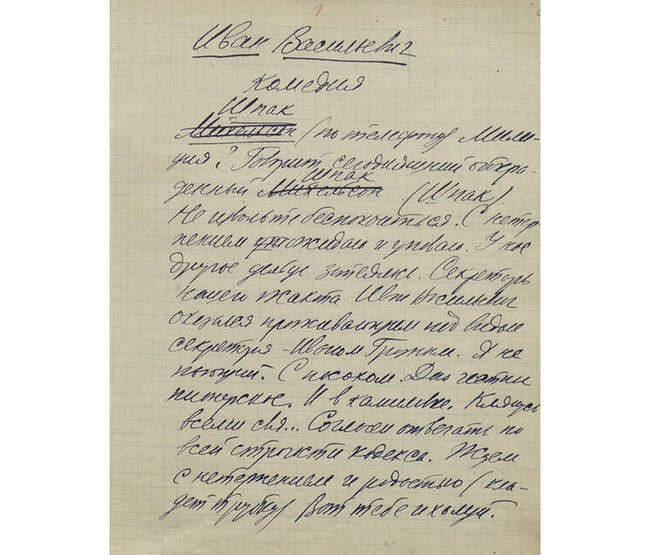 1
Иван Васильевич
Комедия
Шпак
Михельсон (по телефону Мили-
ция? Говорит сегодняшний обкра-
Шпак
денный Михельсон (Шпак)
Не извольте беспокоиться. С нетер-
пением ожидаю и уповаю. У нас
другое дельце затеялось. Секретарь
нашего жакта Иван Васильевич
оказался проживающим под видом
секретаря - Иваном Грозным. Я не
пьющий. С посохом. Даю честный
пионерское. И в каплюшке. Клянусь
всеми свя... Согласен отвечать по
всей строгости кодекса. Ждем
с нетерпением и радостью (кла-
дет трубку) Вот тебе и холуй.